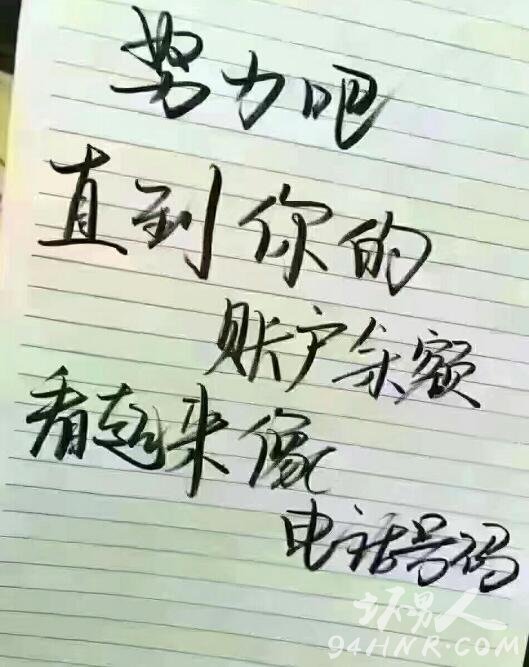 努力吧
直到你的
账户余额
看起来像
电话号码
坏男人
94HNR.COM